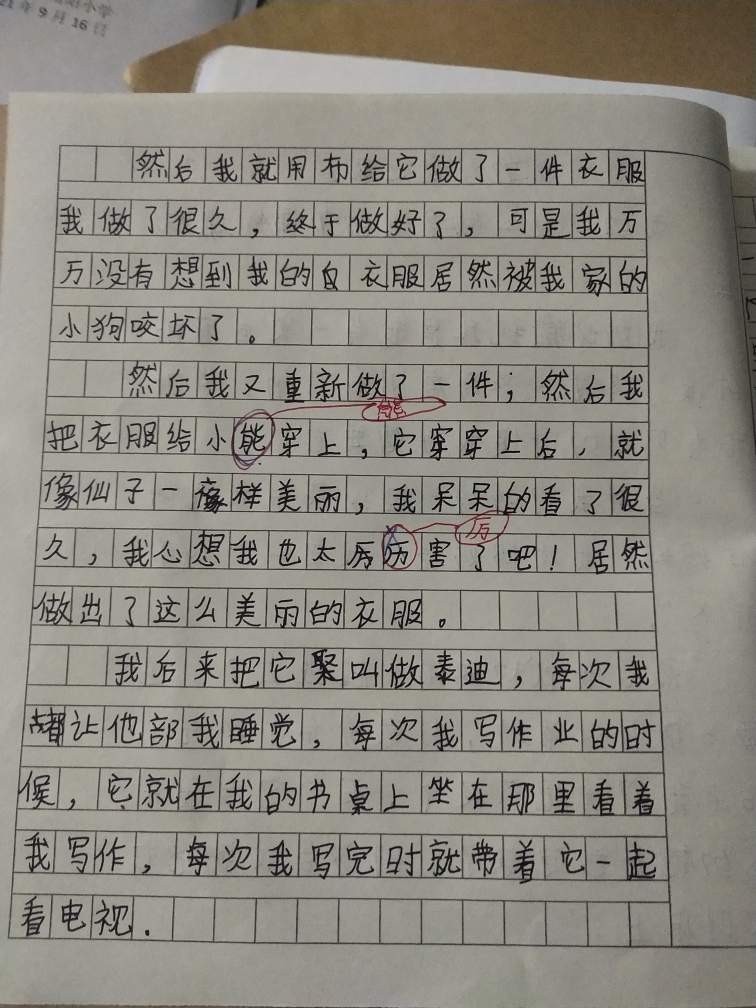 小学
21年9月16日
然后我就用布给它做了一件衣服
我做了很久，终于做好了，可是我万
万没有想到我的白衣服居然被我家的
小狗咬坏了。
然后我又重新做了一件；然后我
熊
把衣服给小能穿上，它穿穿上后，就
像仙子一像样美丽，我呆呆的看了很
厉
久，我心想我也太厉历害了吧！居然
做出了这么美丽的衣服。
我后来把它聚叫做泰迪，每次我
都让他部我睡觉，每次我写作业的时
候，它就在我的书桌上坐在那里看着
我写作，每次我写完时就带着它一起
看电视.